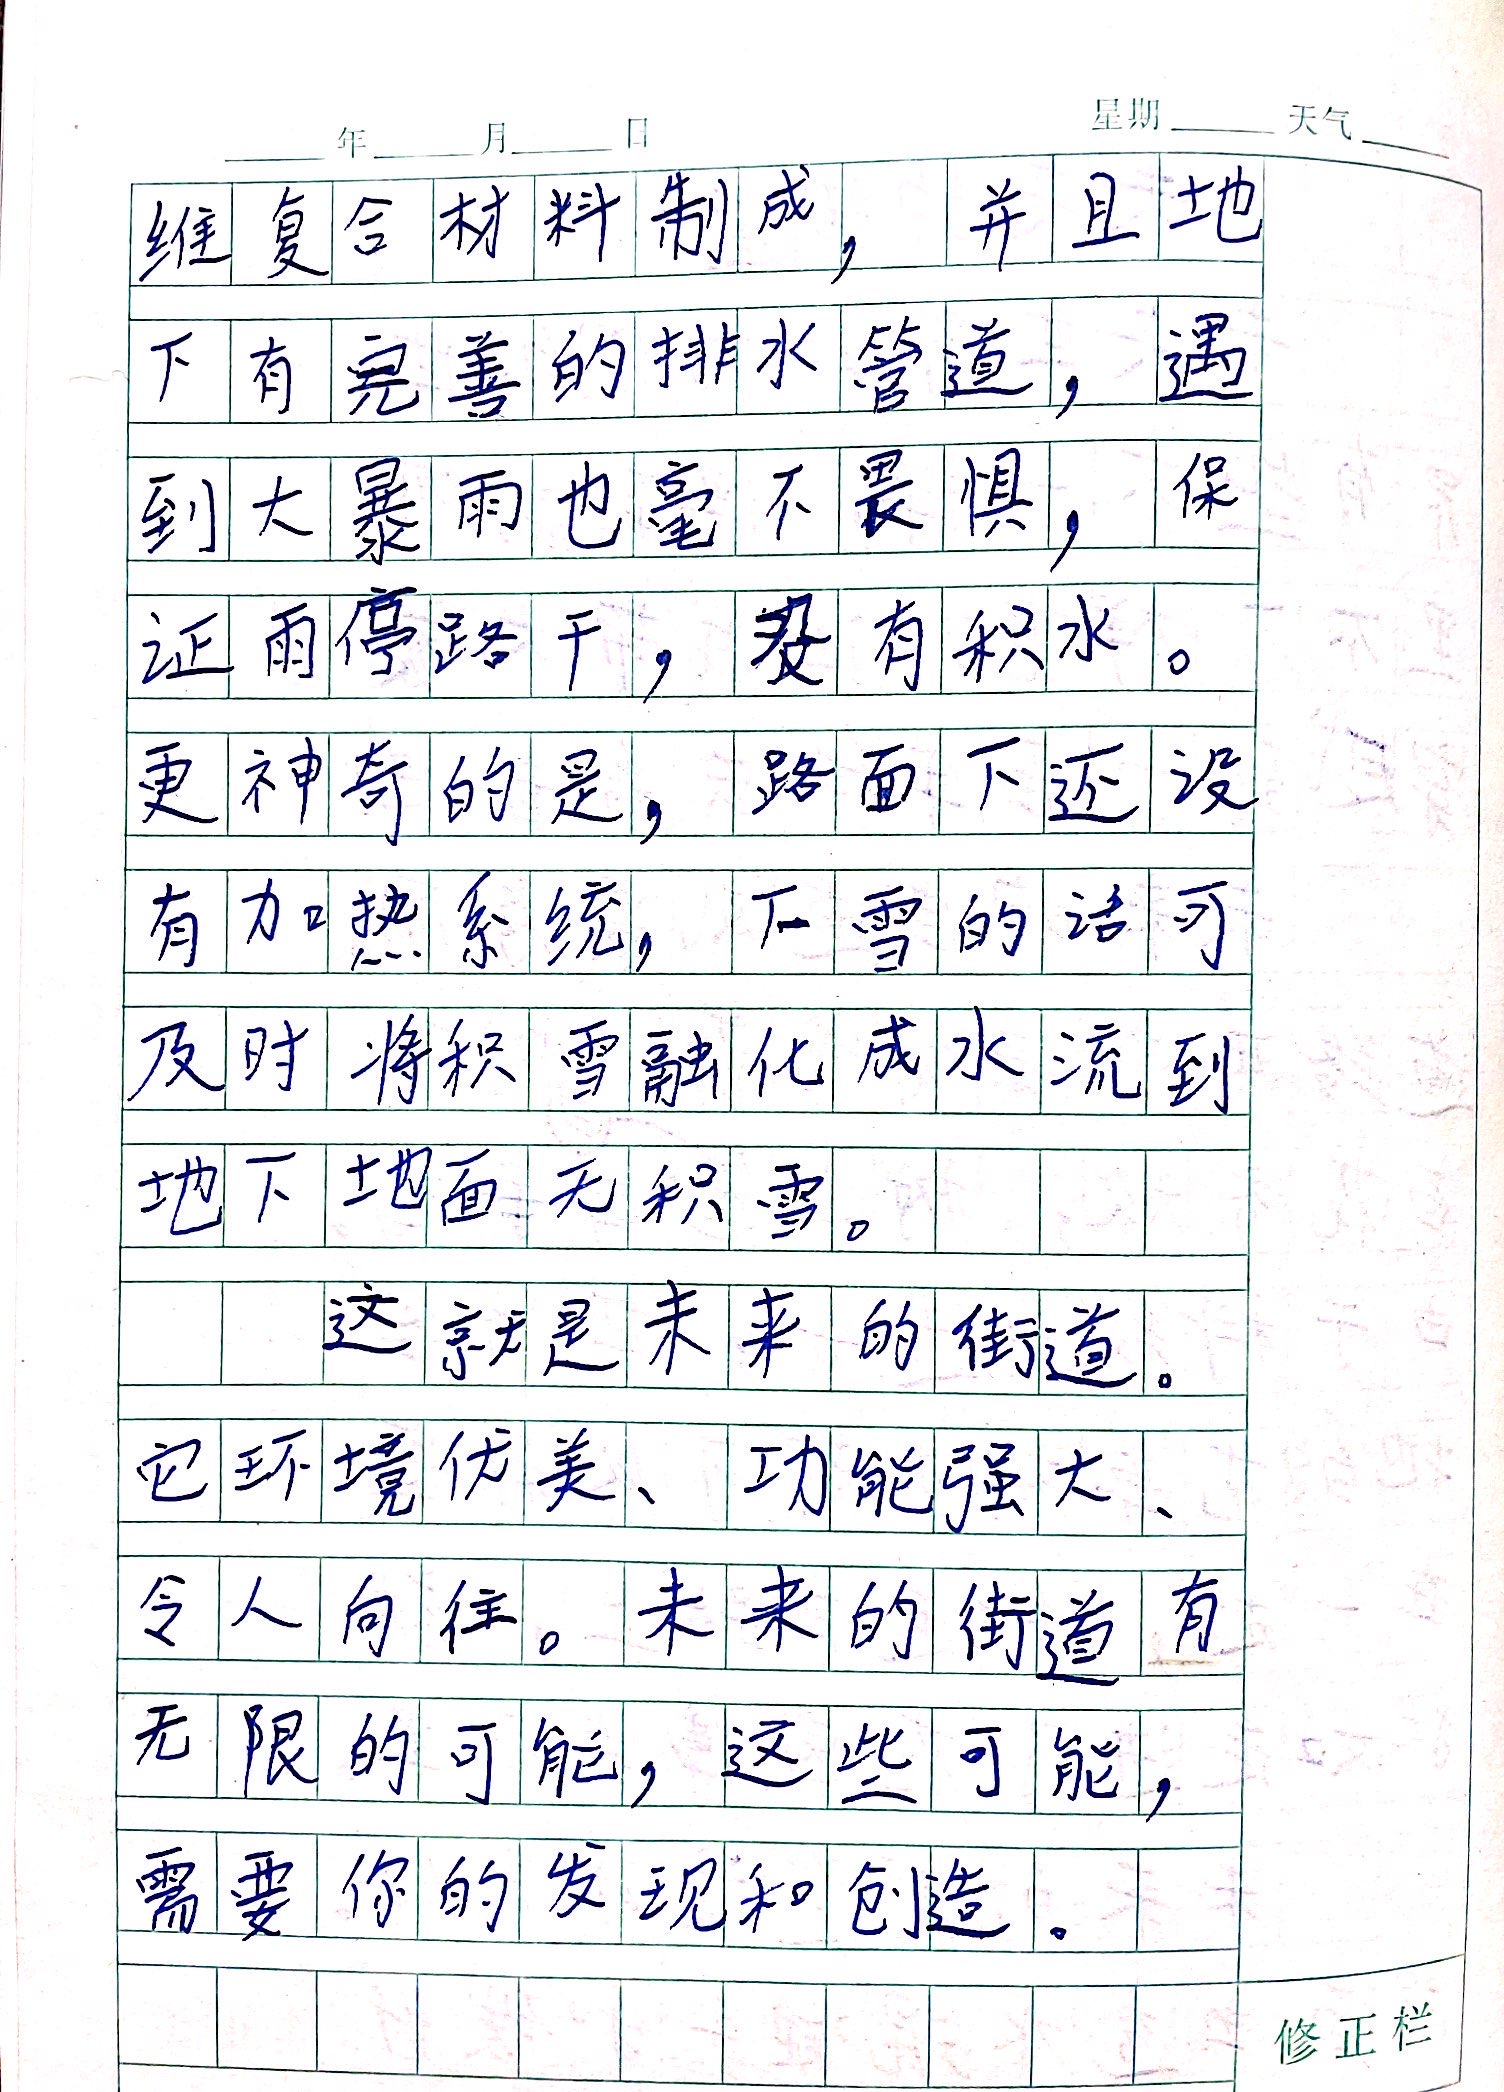 年 月 日 星期 天气
维复合材料制成，并且地
下有完善的排水管道，遇
到大暴雨也毫不畏惧，保
证雨停路干，没有积水。
更神奇的是，路面下还设
有加热系统，下雪的话可
及时将积雪融化成水流到
地下地面无积雪。
这就是未来的街道。
它环境优美、功能强大、
令人向往。未来的街道有
无限的可能，这些可能，
需要你的发现和创造。
修正栏